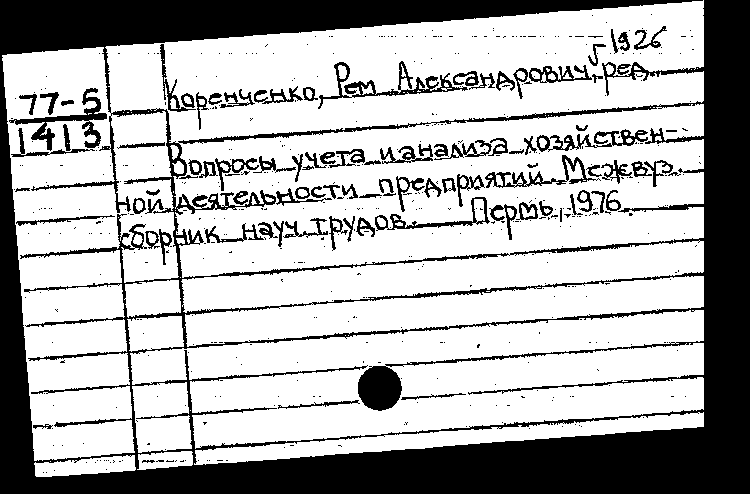 1926
77-5 Коренченко, Рем Александрович, ред.
1413
Вопросы учета и анализа хозяйствен-
ной деятельности предприятий. Межвуз.
сборник науч. трудов. Пермь, 1976.